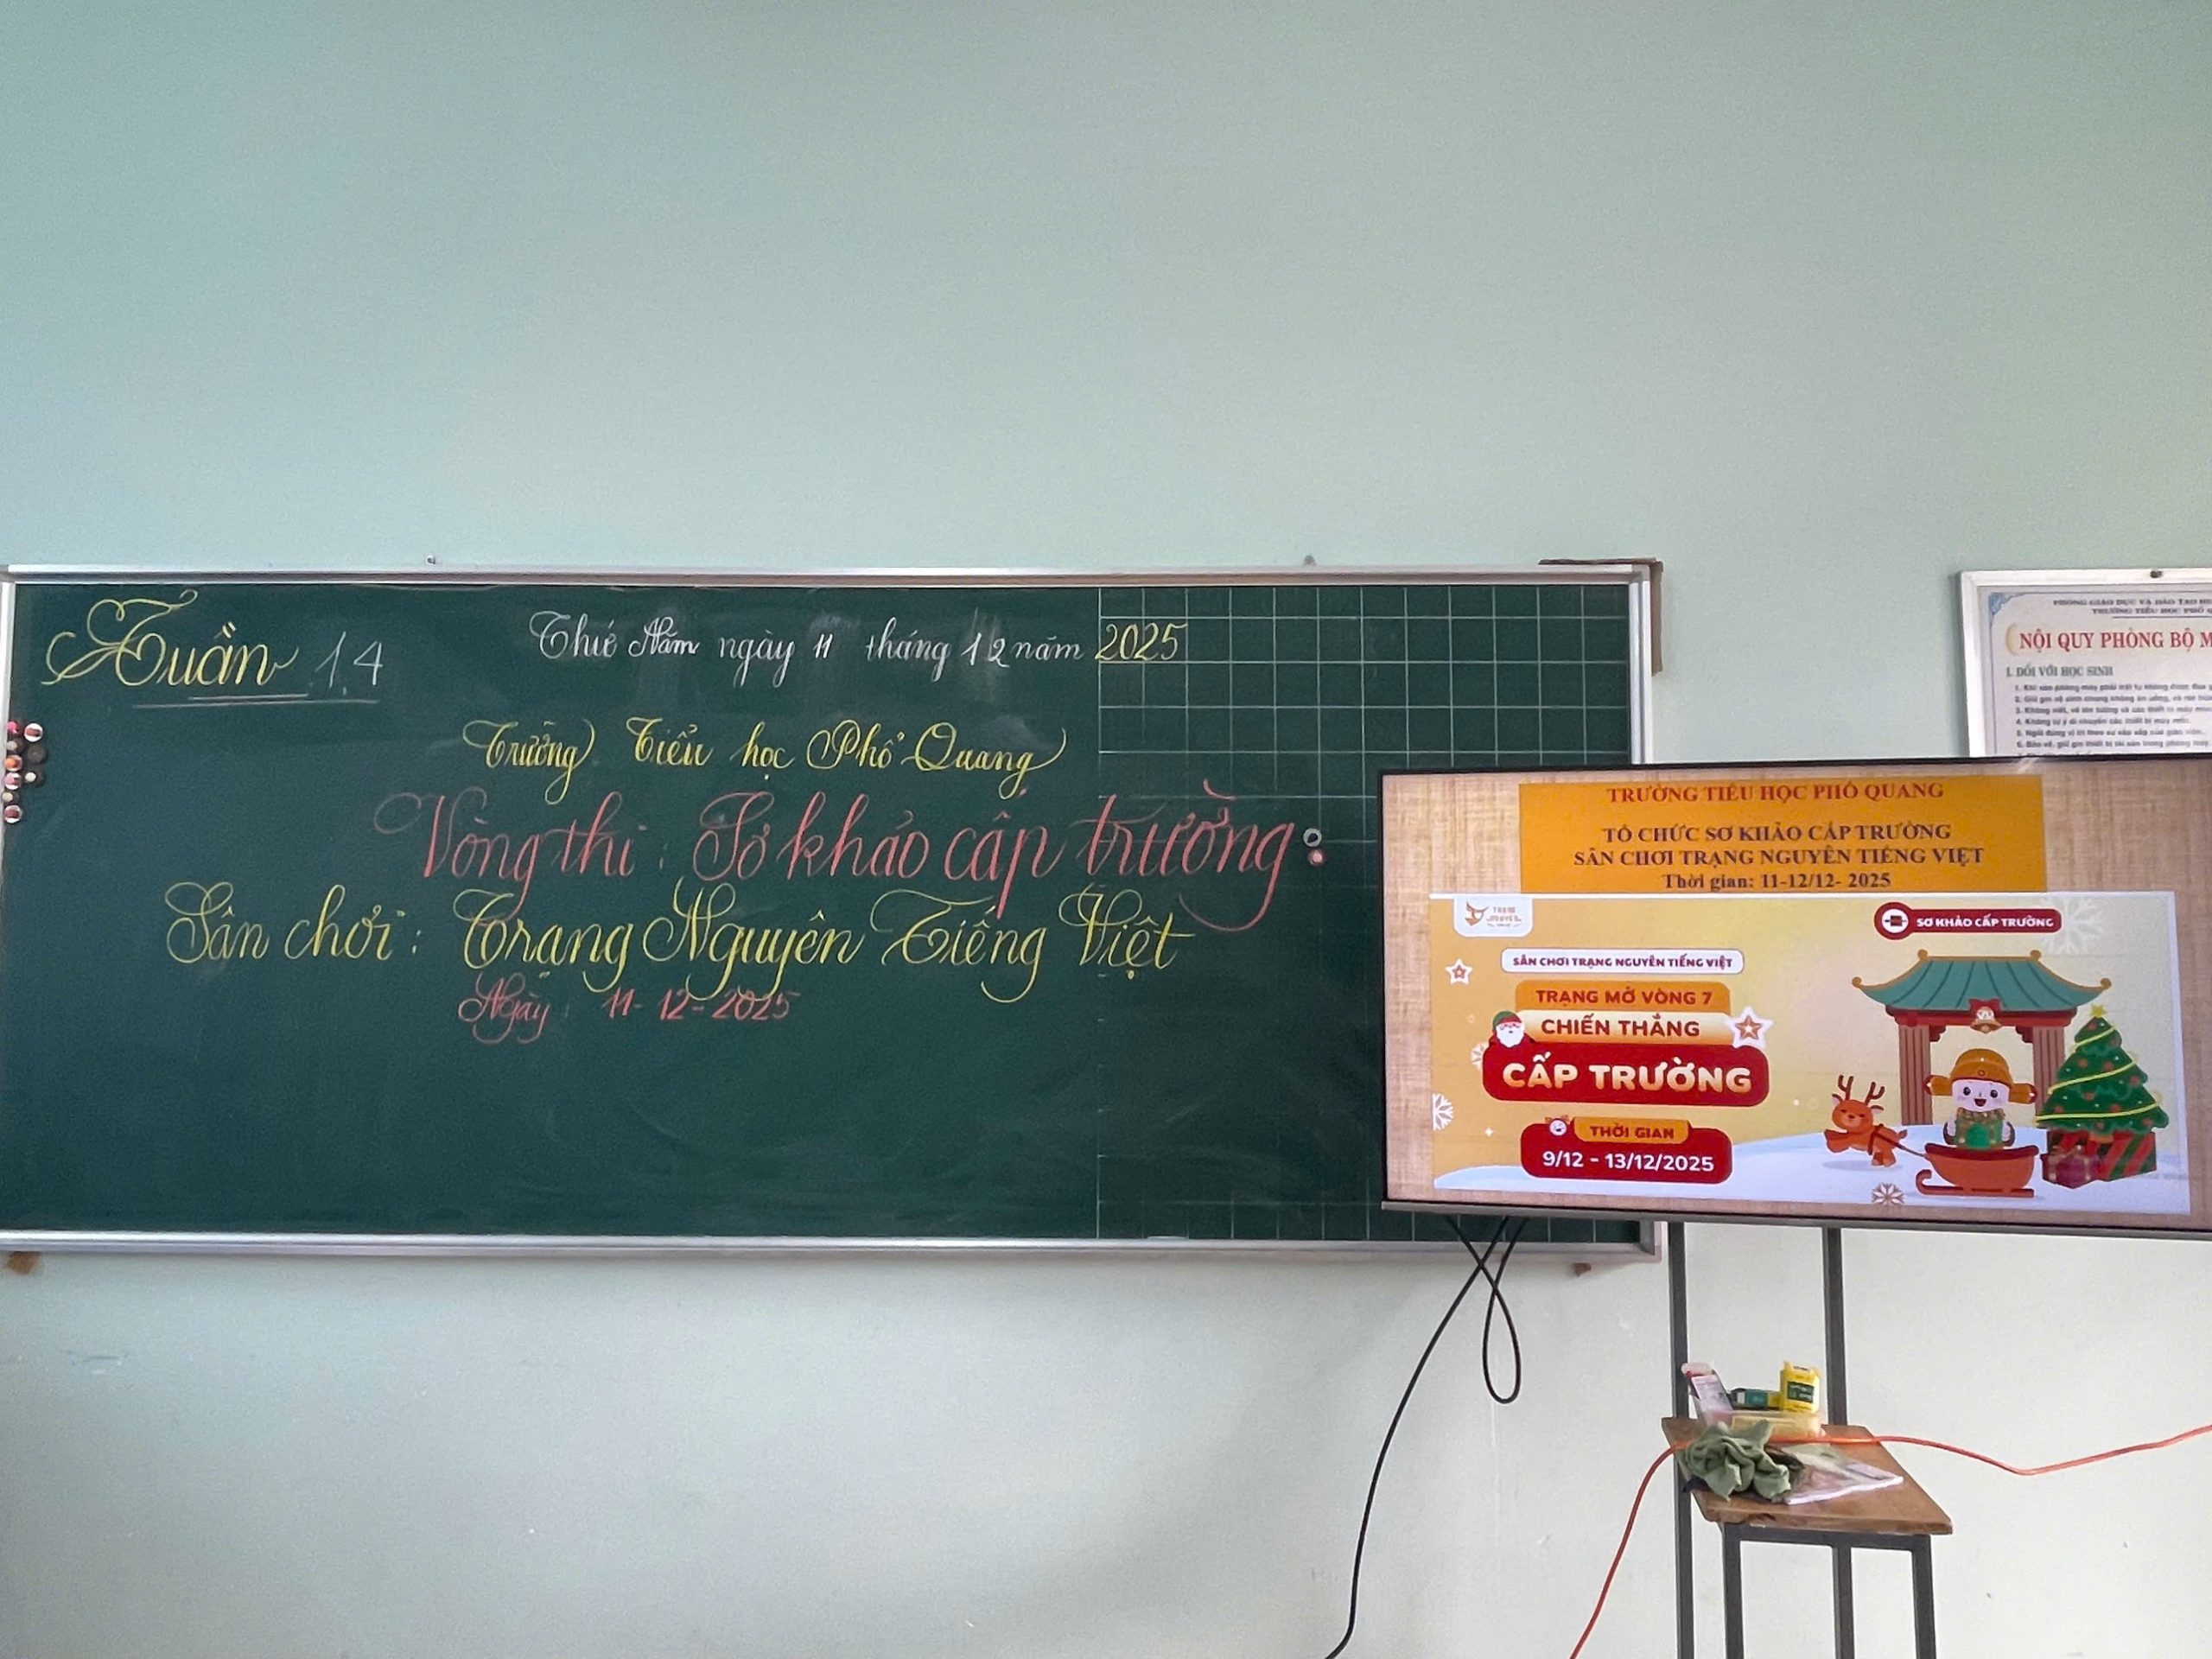 Tuần 14
Thứ Năm ngày 11 tháng 12 năm 2025
Trường Tiểu học Phổ Quang
Vòng thi: Sơ khảo cấp trường:
Sân chơi: Trạng Nguyên Tiếng Việt
Ngày: 11-12-2025
NỘI QUY PHÒNG BỘ M
I. ĐỐI VỚI HỌC SINH
TRƯỜNG TIỂU HỌC PHỔ QUANG
TỔ CHỨC SƠ KHẢO CẤP TRƯỜNG
SÂN CHƠI TRẠNG NGUYÊN TIẾNG VIỆT
Thời gian: 11-12/12- 2025
SƠ KHẢO CẤP TRƯỜNG
SÂN CHƠI TRẠNG NGUYÊN TIẾNG VIỆT
TRẠNG MỞ VÒNG 7
CHIẾN THẮNG
CẤP TRƯỜNG
THỜI GIAN
9/12 - 13/12/2025